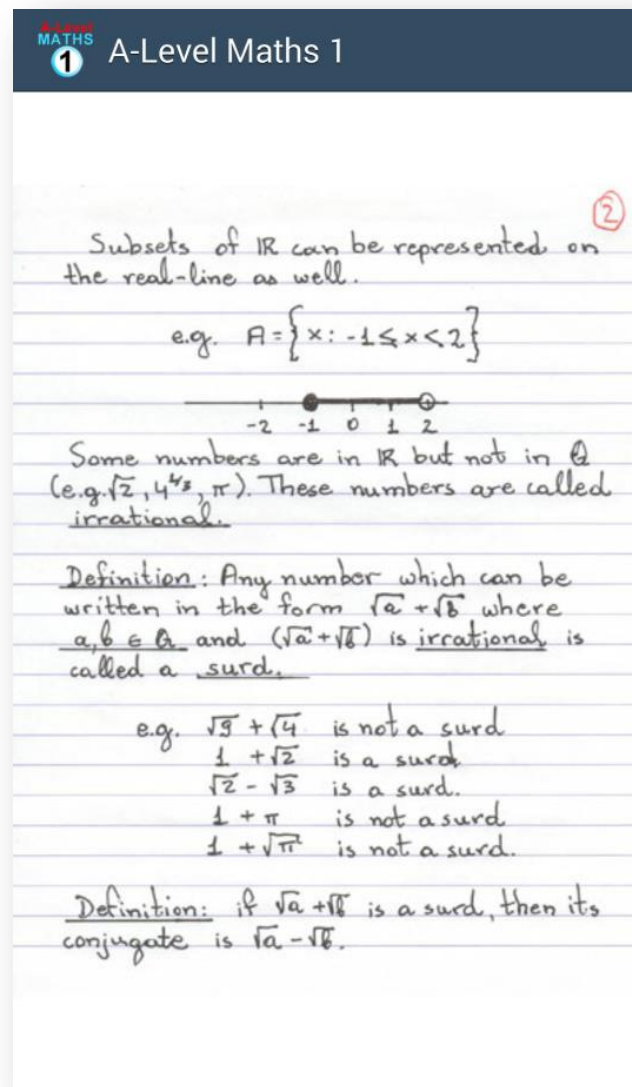 A-Level
MATHS
1
A-Level Maths 1
2
Subsets of ℝ can be represented on
the real-line as well.
e.g. A = {x: -1 ≤ x < 2}
-2 -1 0 1 2
Some numbers are in ℝ but not in ℚ
(e.g. √2, 4^(1/3), π). These numbers are called
irrational.
Definition: Any number which can be
written in the form √a + √b where
a, b ∈ ℚ and (√a + √b) is irrational is
called a surd.
e.g. √9 + √4 is not a surd
1 + √2 is a surd
√2 - √3 is a surd.
1 + π is not a surd
1 + √π is not a surd.
Definition: if √a + √b is a surd, then its
conjugate is √a - √b.